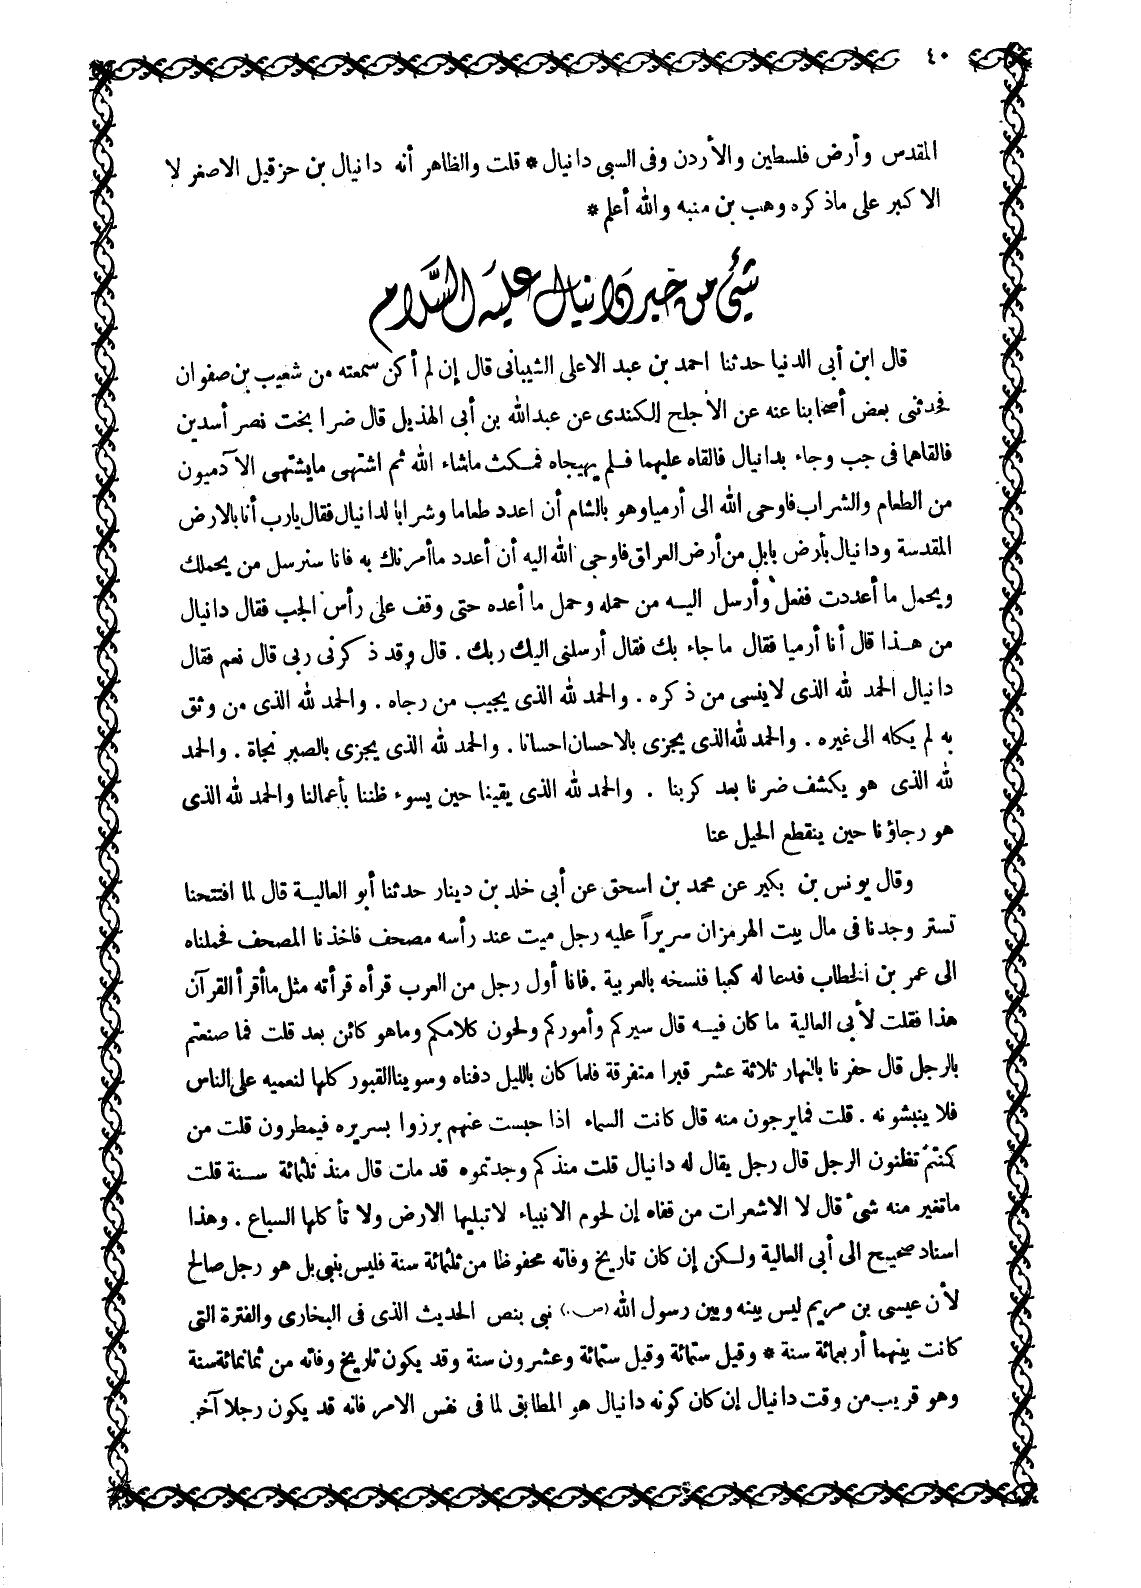 ٤٠
المقدس وأرض فلسطين والأردن وفى السبى دانيال * قلت والظاهر أنه دانيال بن حزقيل الاصغر لا
الاكبر على ماذكره وهب بن منبه والله أعلم *
شيئ من خبر دانيال عليه السَّلام
قال ابن أبى الدنيا حدثنا احمد بن عبد الاعلى الشيبانى قال إن لم أكن سمعته من شعيب بن صفوان
فحدثنى بعض أصحابنا عنه عن الأجلح الكندى عن عبدالله بن أبى الهذيل قال ضرا بخت نصر أسدين
فالقاهما فى جب وجاء بدانيال فالقاه عليهما فلم يهيجاه فمكث ماشاء الله ثم اشتهى مايشتهى الآدميون
من الطعام والشراب فاوحى الله الى أرميا وهو بالشام أن اعدد طعاما وشرابا لدانيال فقال يارب أنا بالارض
المقدسة ودانيال بأرض بابل من أرض العراق فاوحى الله اليه أن أعدد ماأمرناك به فانا سنرسل من يحملك
ويحمل ما أعددت ففعل وأرسل اليه من حمله وحمل ما أعده حتى وقف على رأس الجب فقال دانيال
من هذا قال أنا أرميا فقال ما جاء بك فقال أرسلنى اليك ربك . قال وقد ذكرنى ربى قال نعم فقال
دانيال الحمد لله الذى لاينسى من ذكره . والحمد لله الذى يجيب من رجاه . والحمد لله الذى من وثق
به لم يكله الى غيره . والحمد لله الذى يجزى بالاحسان احسانا . والحمد لله الذى يجزى بالصبر نجاة . والحمد
لله الذى هو يكشف ضرنا بعد كربنا . والحمد لله الذى يقينا حين يسوء ظننا بأعمالنا والحمد لله الذى
هو رجاؤنا حين ينقطع الحيل عنا
وقال يونس بن بكير عن محمد بن اسحق عن أبى خلد بن دينار حدثنا أبو العالية قال لما افتتحنا
تستر وجدنا فى مال بيت الهرمزان سريراً عليه رجل ميت عند رأسه مصحف فاخذنا المصحف فحملناه
الى عمر بن الخطاب فدعا له كعبا فنسخه بالعربية . فانا أول رجل من العرب قرأه قرأته مثل ماأقرأ القرآن
هذا فقلت لأبى العالية ما كان فيه قال سيركم وأموركم ولحون كلامكم وماهو كائن بعد قلت فما صنعتم
بالرجل قال حفرنا بالنهار ثلاثة عشر قبرا متفرقة فلما كان بالليل دفناه وسوينا القبور كلها لنعميه على الناس
فلا ينبشونه . قلت فمايرجون منه قال كانت السماء اذا حبست عنهم برزوا بسريره فيمطرون قلت من
كنتم تظنون الرجل قال رجل يقال له دانيال قلت منذ كم وجدتموه قد مات قال منذ ثلثمائة سنة قلت
ماتغير منه شئ قال لا الاشعرات من قفاه إن لحوم الانبياء لاتبليها الارض ولا تأكلها السباع . وهذا
اسناد صحيح الى أبى العالية ولكن إن كان تاريخ وفاته محفوظا من ثلثمائة سنة فليس بنبى بل هو رجل صالح
لأن عيسى بن مريم ليس بينه وبين رسول الله (ص.) نبى بنص الحديث الذى فى البخارى والفترة التى
كانت بينهما أربعمائة سنة * وقيل ستمائة وقيل ستمائة وعشرون سنة وقد يكون تاريخ وفاته من ثمانمائة سنة
وهو قريب من وقت دانيال إن كان كونه دانيال هو المطابق لما فى نفس الامر فانه قد يكون رجلا آخر